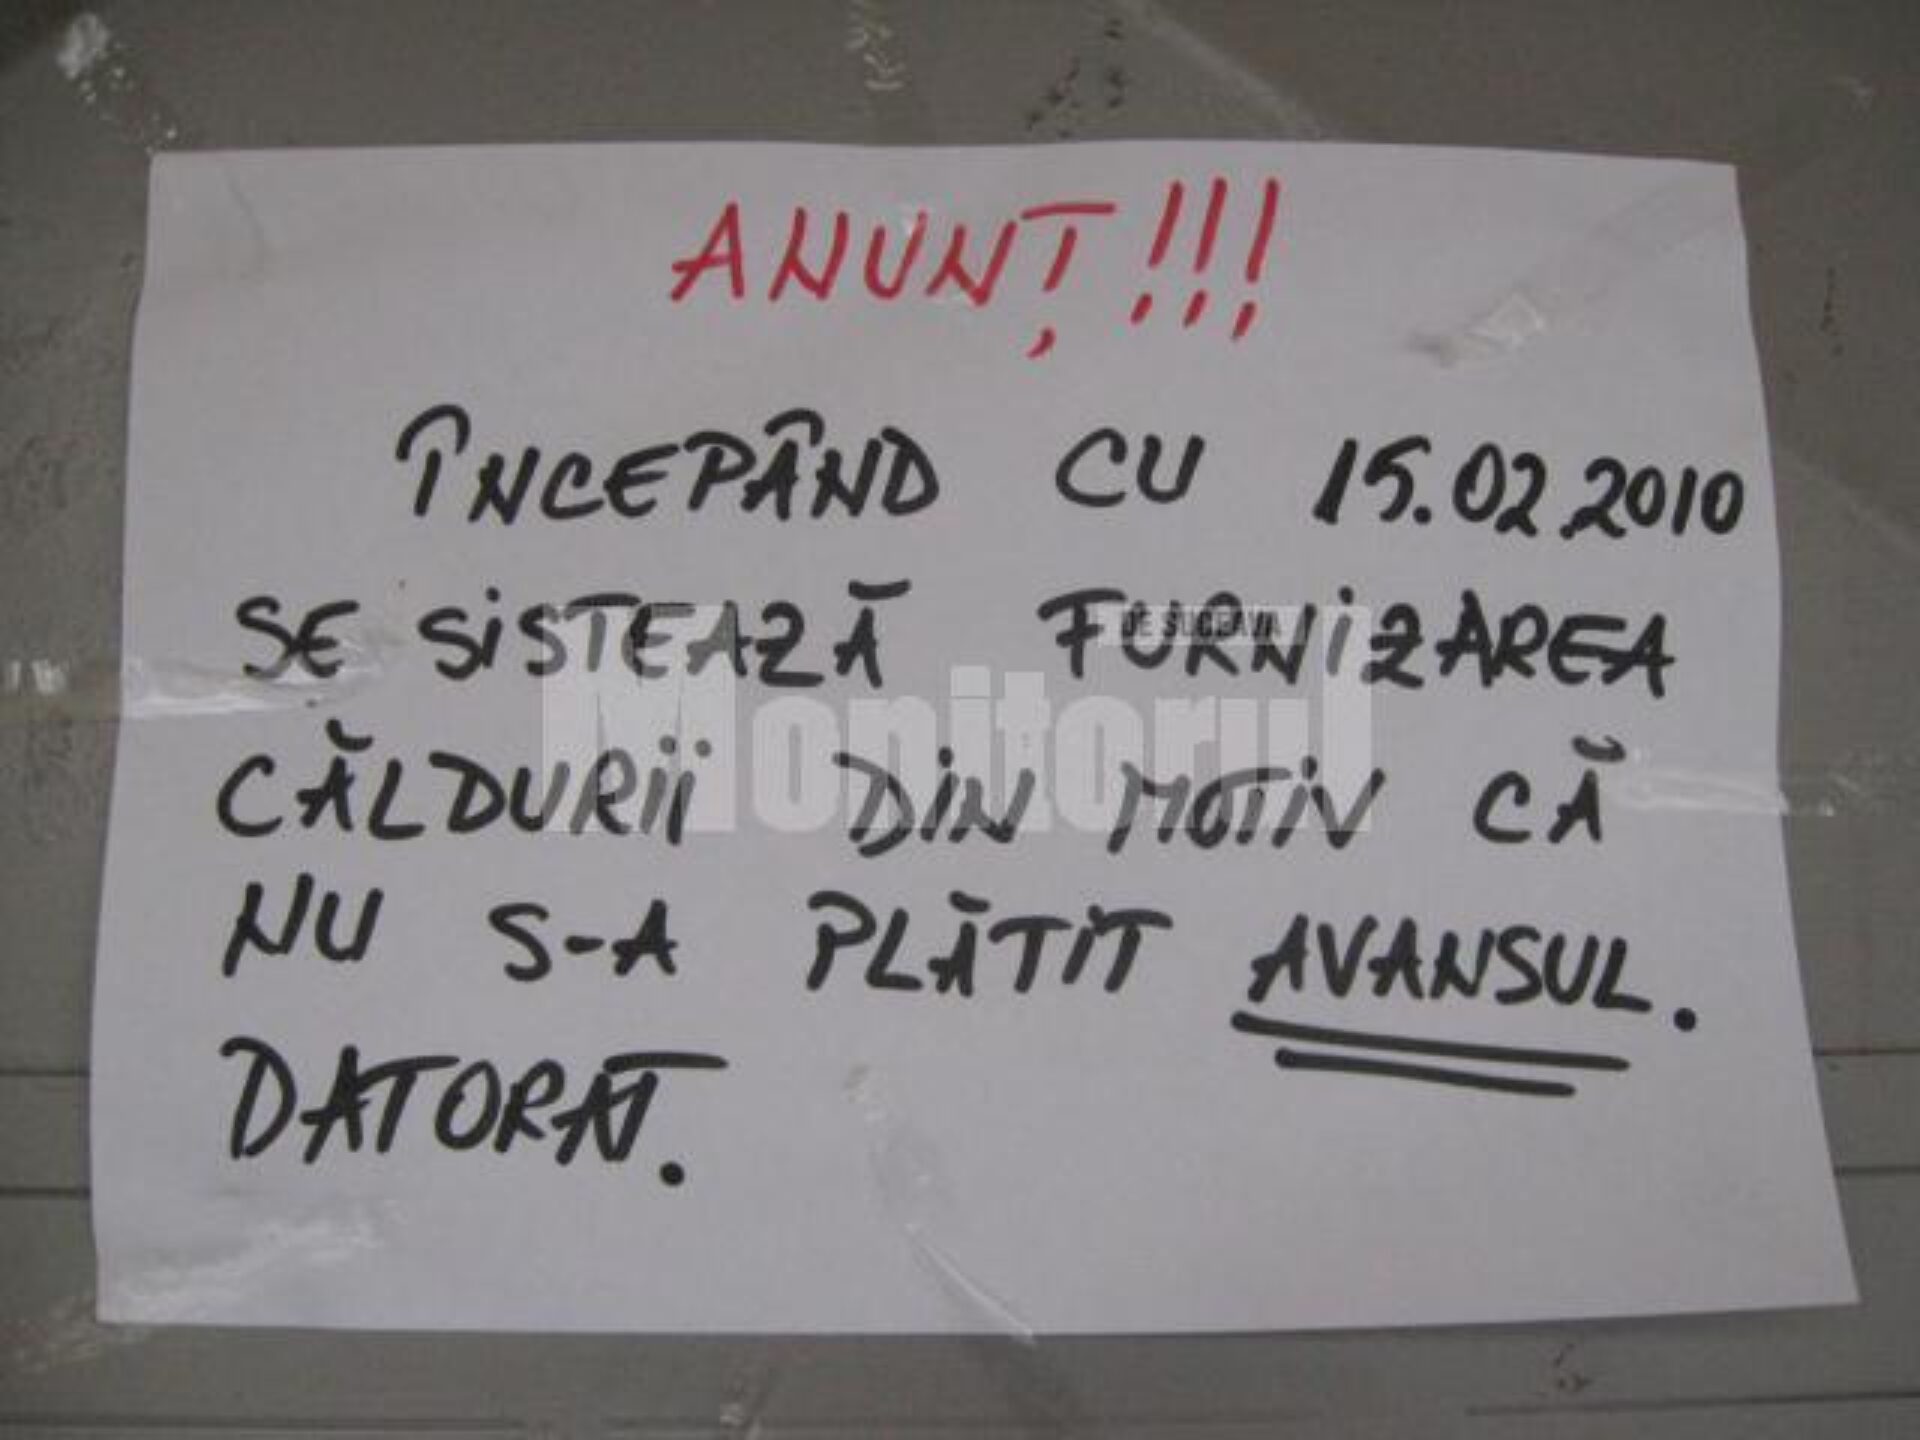 ANUNȚ!!!
ÎNCEPÂND CU 15.02.2010
SE SISTEAZĂ FURNIZAREA
DE SUCEAVA
Monitorul
CĂLDURII DIN MOTIV CĂ
NU S-A PLĂTIT AVANSUL.
DATORAT.